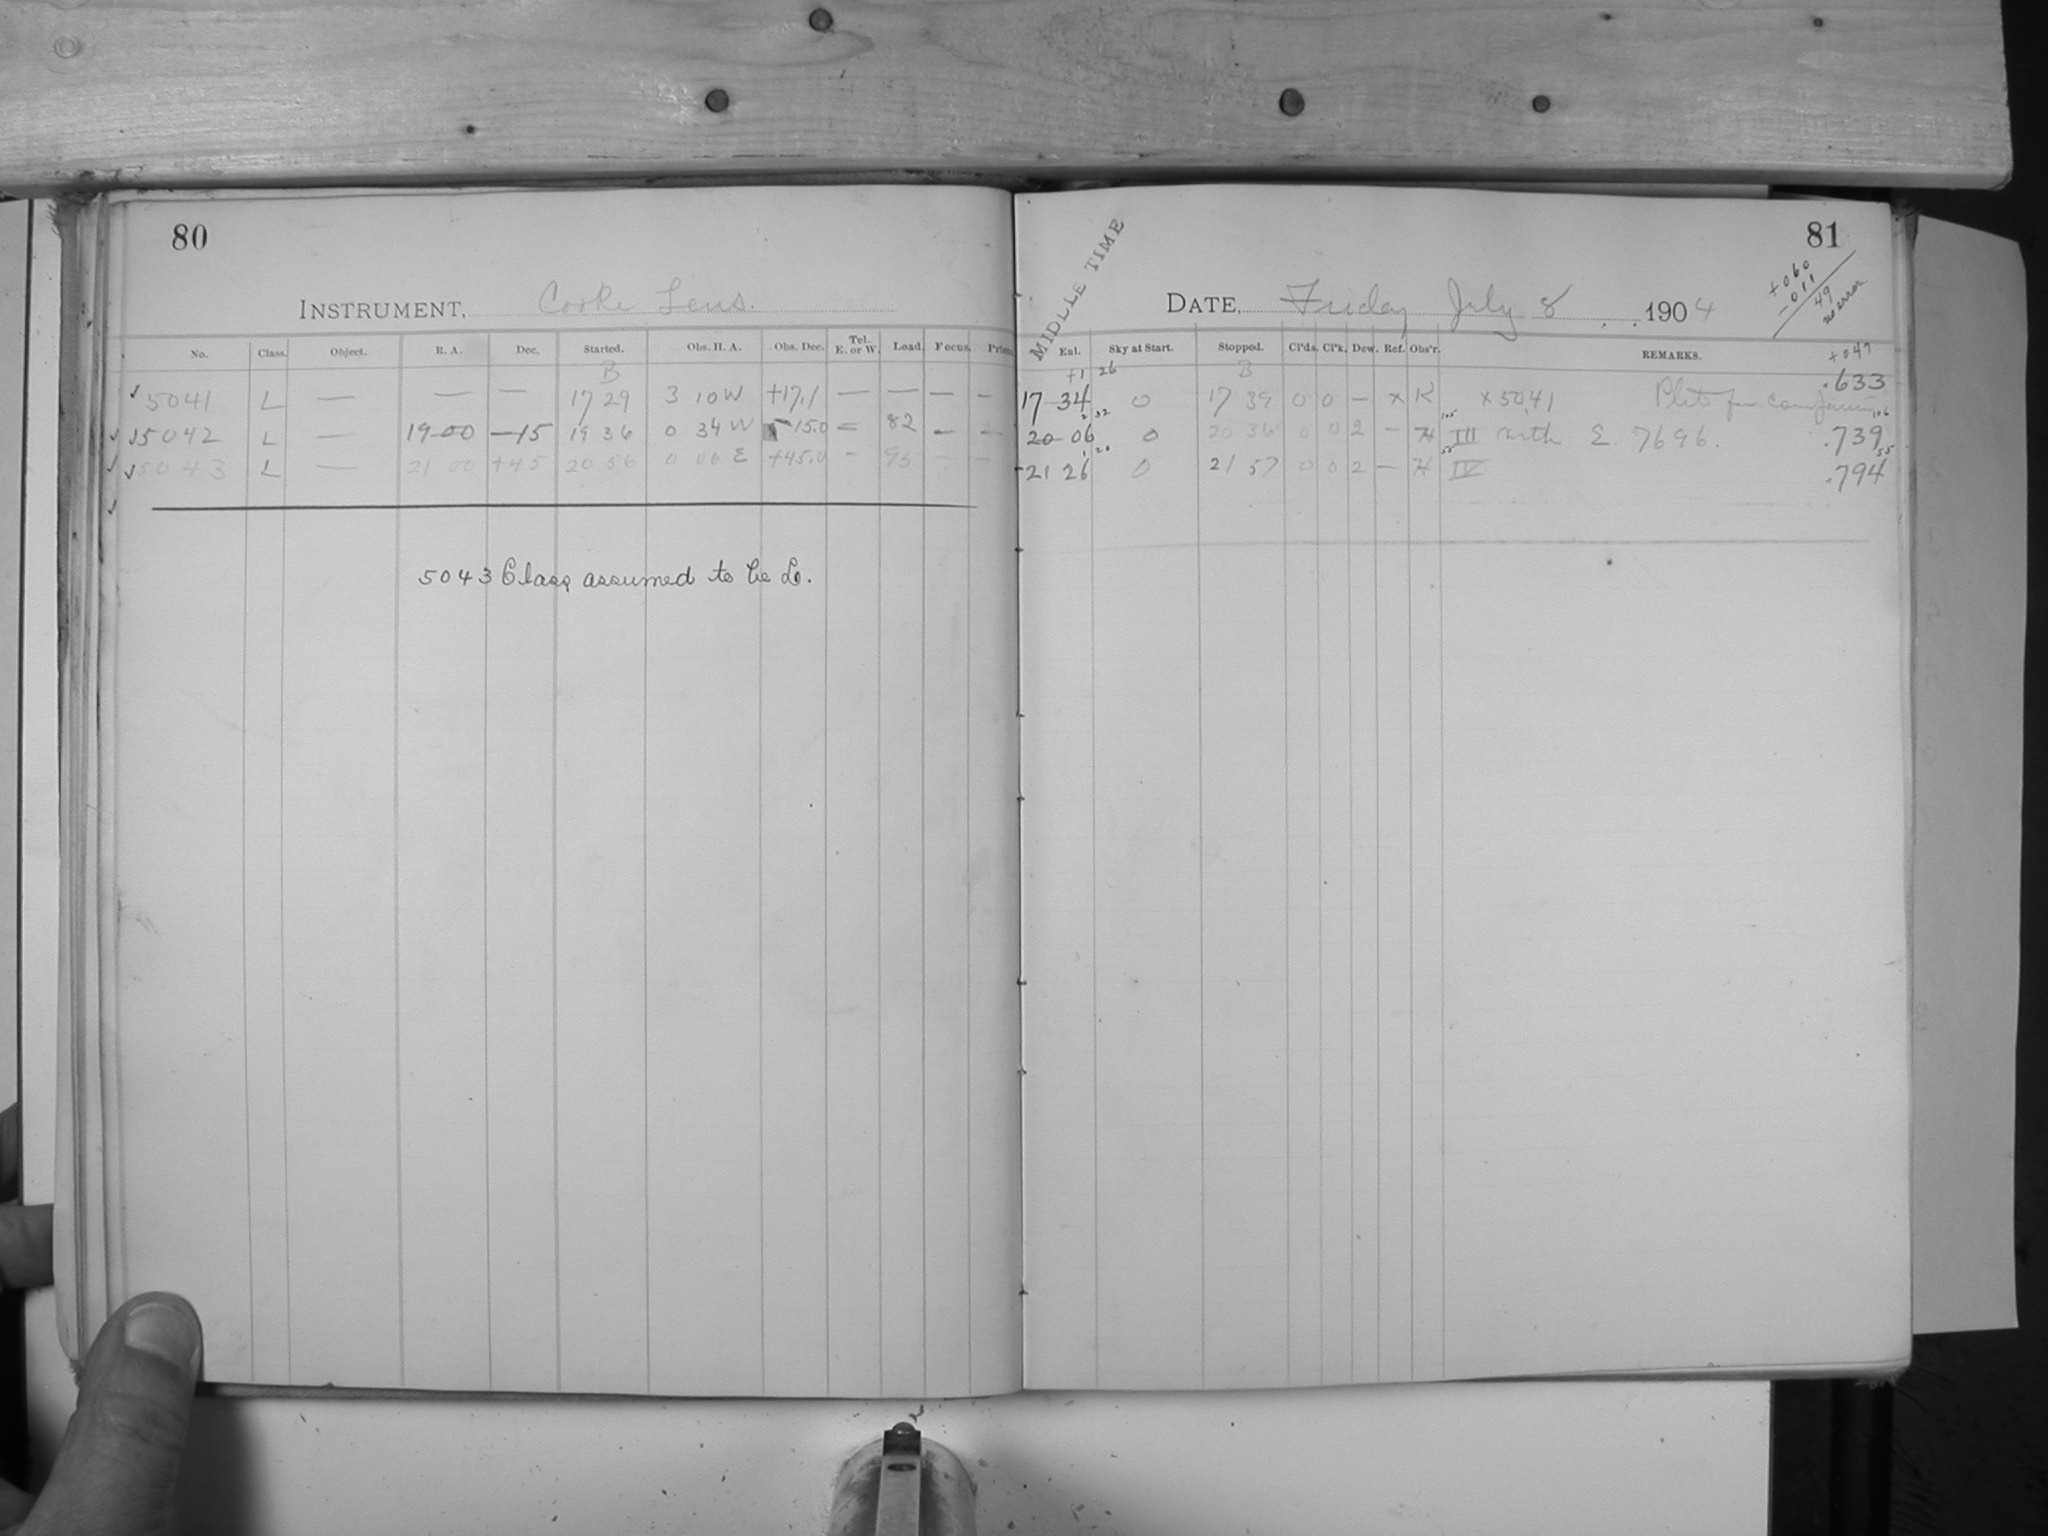 80
INSTRUMENT, Cooke Lens.
No. Class. Object. R. A. Dec. Started. Obs. H. A. Obs. Dec. Tel. E. or W. Load. Focus. Prism
B
✓ 5041 L — — — 17 29 3 10 W +17.1 — — — —
✓ ✓ 5042 L — 19 00 —15 19 36 0 34 W —15.0 — 82 — —
✓ ✓ 5043 L — 21 00 +45 20 56 0 06 E +45.0 — 95 — —
✓
5043 Class assumed to be L.
81
MIDDLE TIME
DATE, Friday July 8 1904
+060
-011
49
no error
Enl. Sky at Start. Stopped. Cl'ds. Cl'k. Dew. Ref. Obs'r. REMARKS.
+049
+1 26 B
17 34 0 17 39 0 0 — x K x 5041 Plate for .633
2 32 105 106
20 06 0 20 36 0 0 2 — H III with E 7696. .739
1 20 55 55
21 26 0 21 57 0 0 2 — H IV .794